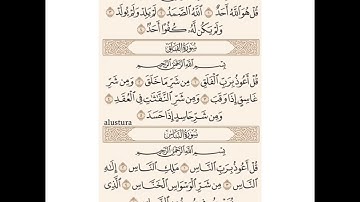 قُلْ هُوَ اللَّهُ أَحَدٌ ۝ اللَّهُ الصَّمَدُ ۝ لَمْ يَلِدْ وَلَمْ يُولَدْ ۝
وَلَمْ يَكُن لَّهُ كُفُوًا أَحَدٌ ۝
سُورَةُ الفَلَقِ
بِسْمِ اللَّهِ الرَّحْمَٰنِ الرَّحِيمِ
قُلْ أَعُوذُ بِرَبِّ الْفَلَقِ ۝ مِن شَرِّ مَا خَلَقَ ۝ وَمِن شَرِّ
غَاسِقٍ إِذَا وَقَبَ ۝ وَمِن شَرِّ النَّفَّاثَاتِ فِي الْعُقَدِ ۝
وَمِن شَرِّ حَاسِدٍ إِذَا حَسَدَ ۝
alustura
سُورَةُ النَّاسِ
بِسْمِ اللَّهِ الرَّحْمَٰنِ الرَّحِيمِ
قُلْ أَعُوذُ بِرَبِّ النَّاسِ ۝ مَلِكِ النَّاسِ ۝ إِلَٰهِ
النَّاسِ ۝ مِن شَرِّ الْوَسْوَاسِ الْخَنَّاسِ ۝ الَّذِي